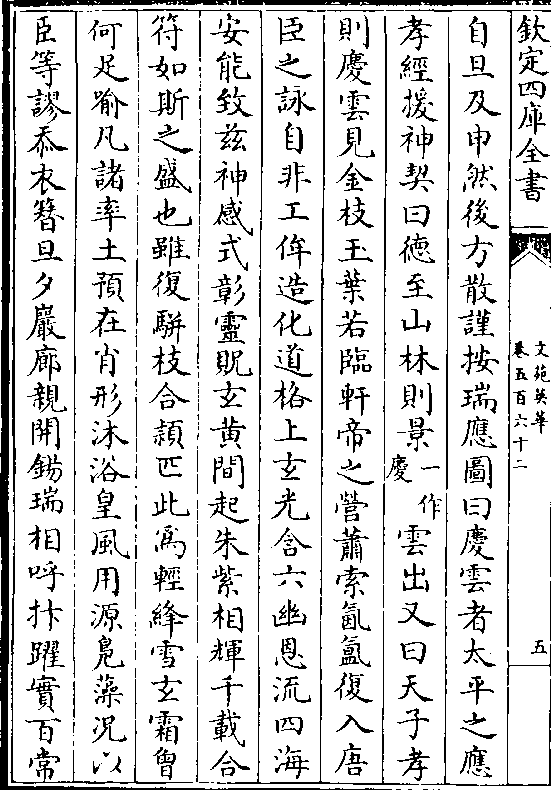 欽定四庫全書
文苑英華
卷五百六十二
五
自旦及申然後方散謹按瑞應圖曰慶雲者太平之應
孝經援神契曰德至山林則景一作慶雲出又曰天子孝
則慶雲見金枝玉葉若臨軒帝之營蕭索氤氳復入唐
臣之詠自非工侔造化道格上玄光含六幽恩流四海
安能致兹神感式彰靈貺玄黄間起朱紫相輝千載合
符如斯之盛也雖復駢枝合穎匹此為輕絳雪玄霜曾
何足喻凡諸率土預在肖形沐浴皇風用源鳬藻况以
臣等謬忝衣簪旦夕巖廊親開錫瑞相呼抃躍實百常